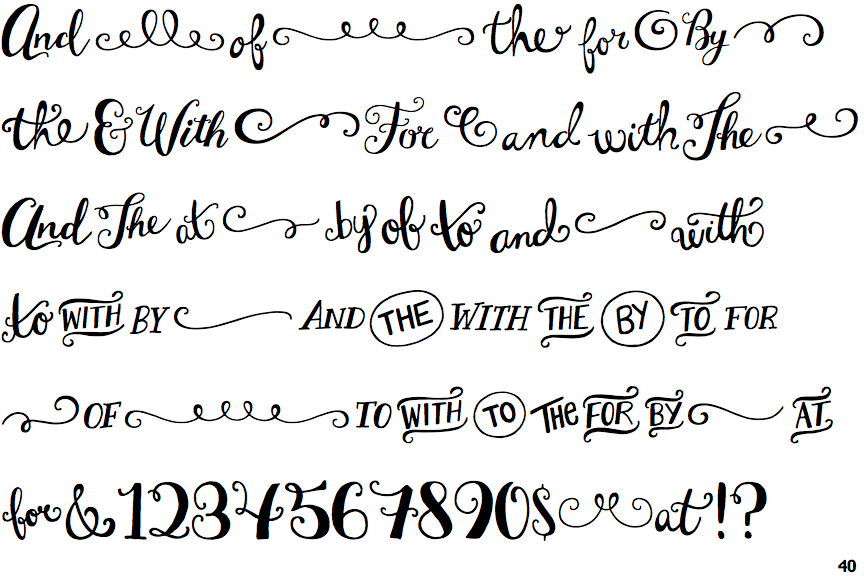 And of the for By
the & With For and with The
And The at by of to and with
to WITH BY AND THE WITH THE BY TO FOR
OF TO WITH TO THE FOR BY AT
for & 1234567890$ at !?
40